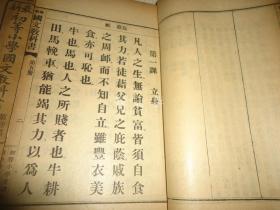 第一課 立身
凡人之生無論貧富皆須自食
其力若徒藉父兄之庇蔭戚族
之周卹而不自立雖豐衣美
食亦可恥也
牛也馬也人之所賤者也牛耕
田馬輓車猶能竭其力以為人
國文教科書
二
初等小學國文教科